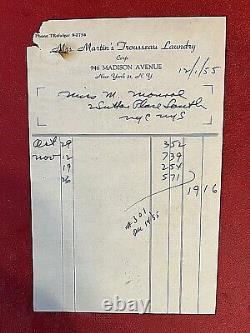 Phone TRafalgar 9-2738
Miss Martin's Trousseau Laundry
Corp.
946 MADISON AVENUE
New York 21, N. Y.
12/1/55
Miss M. Monroe
2 Sutton Place South
NYC NYS
Oct 29 352
Nov 12 739
19 254
26 571
1916
# 301
Dec 14 55